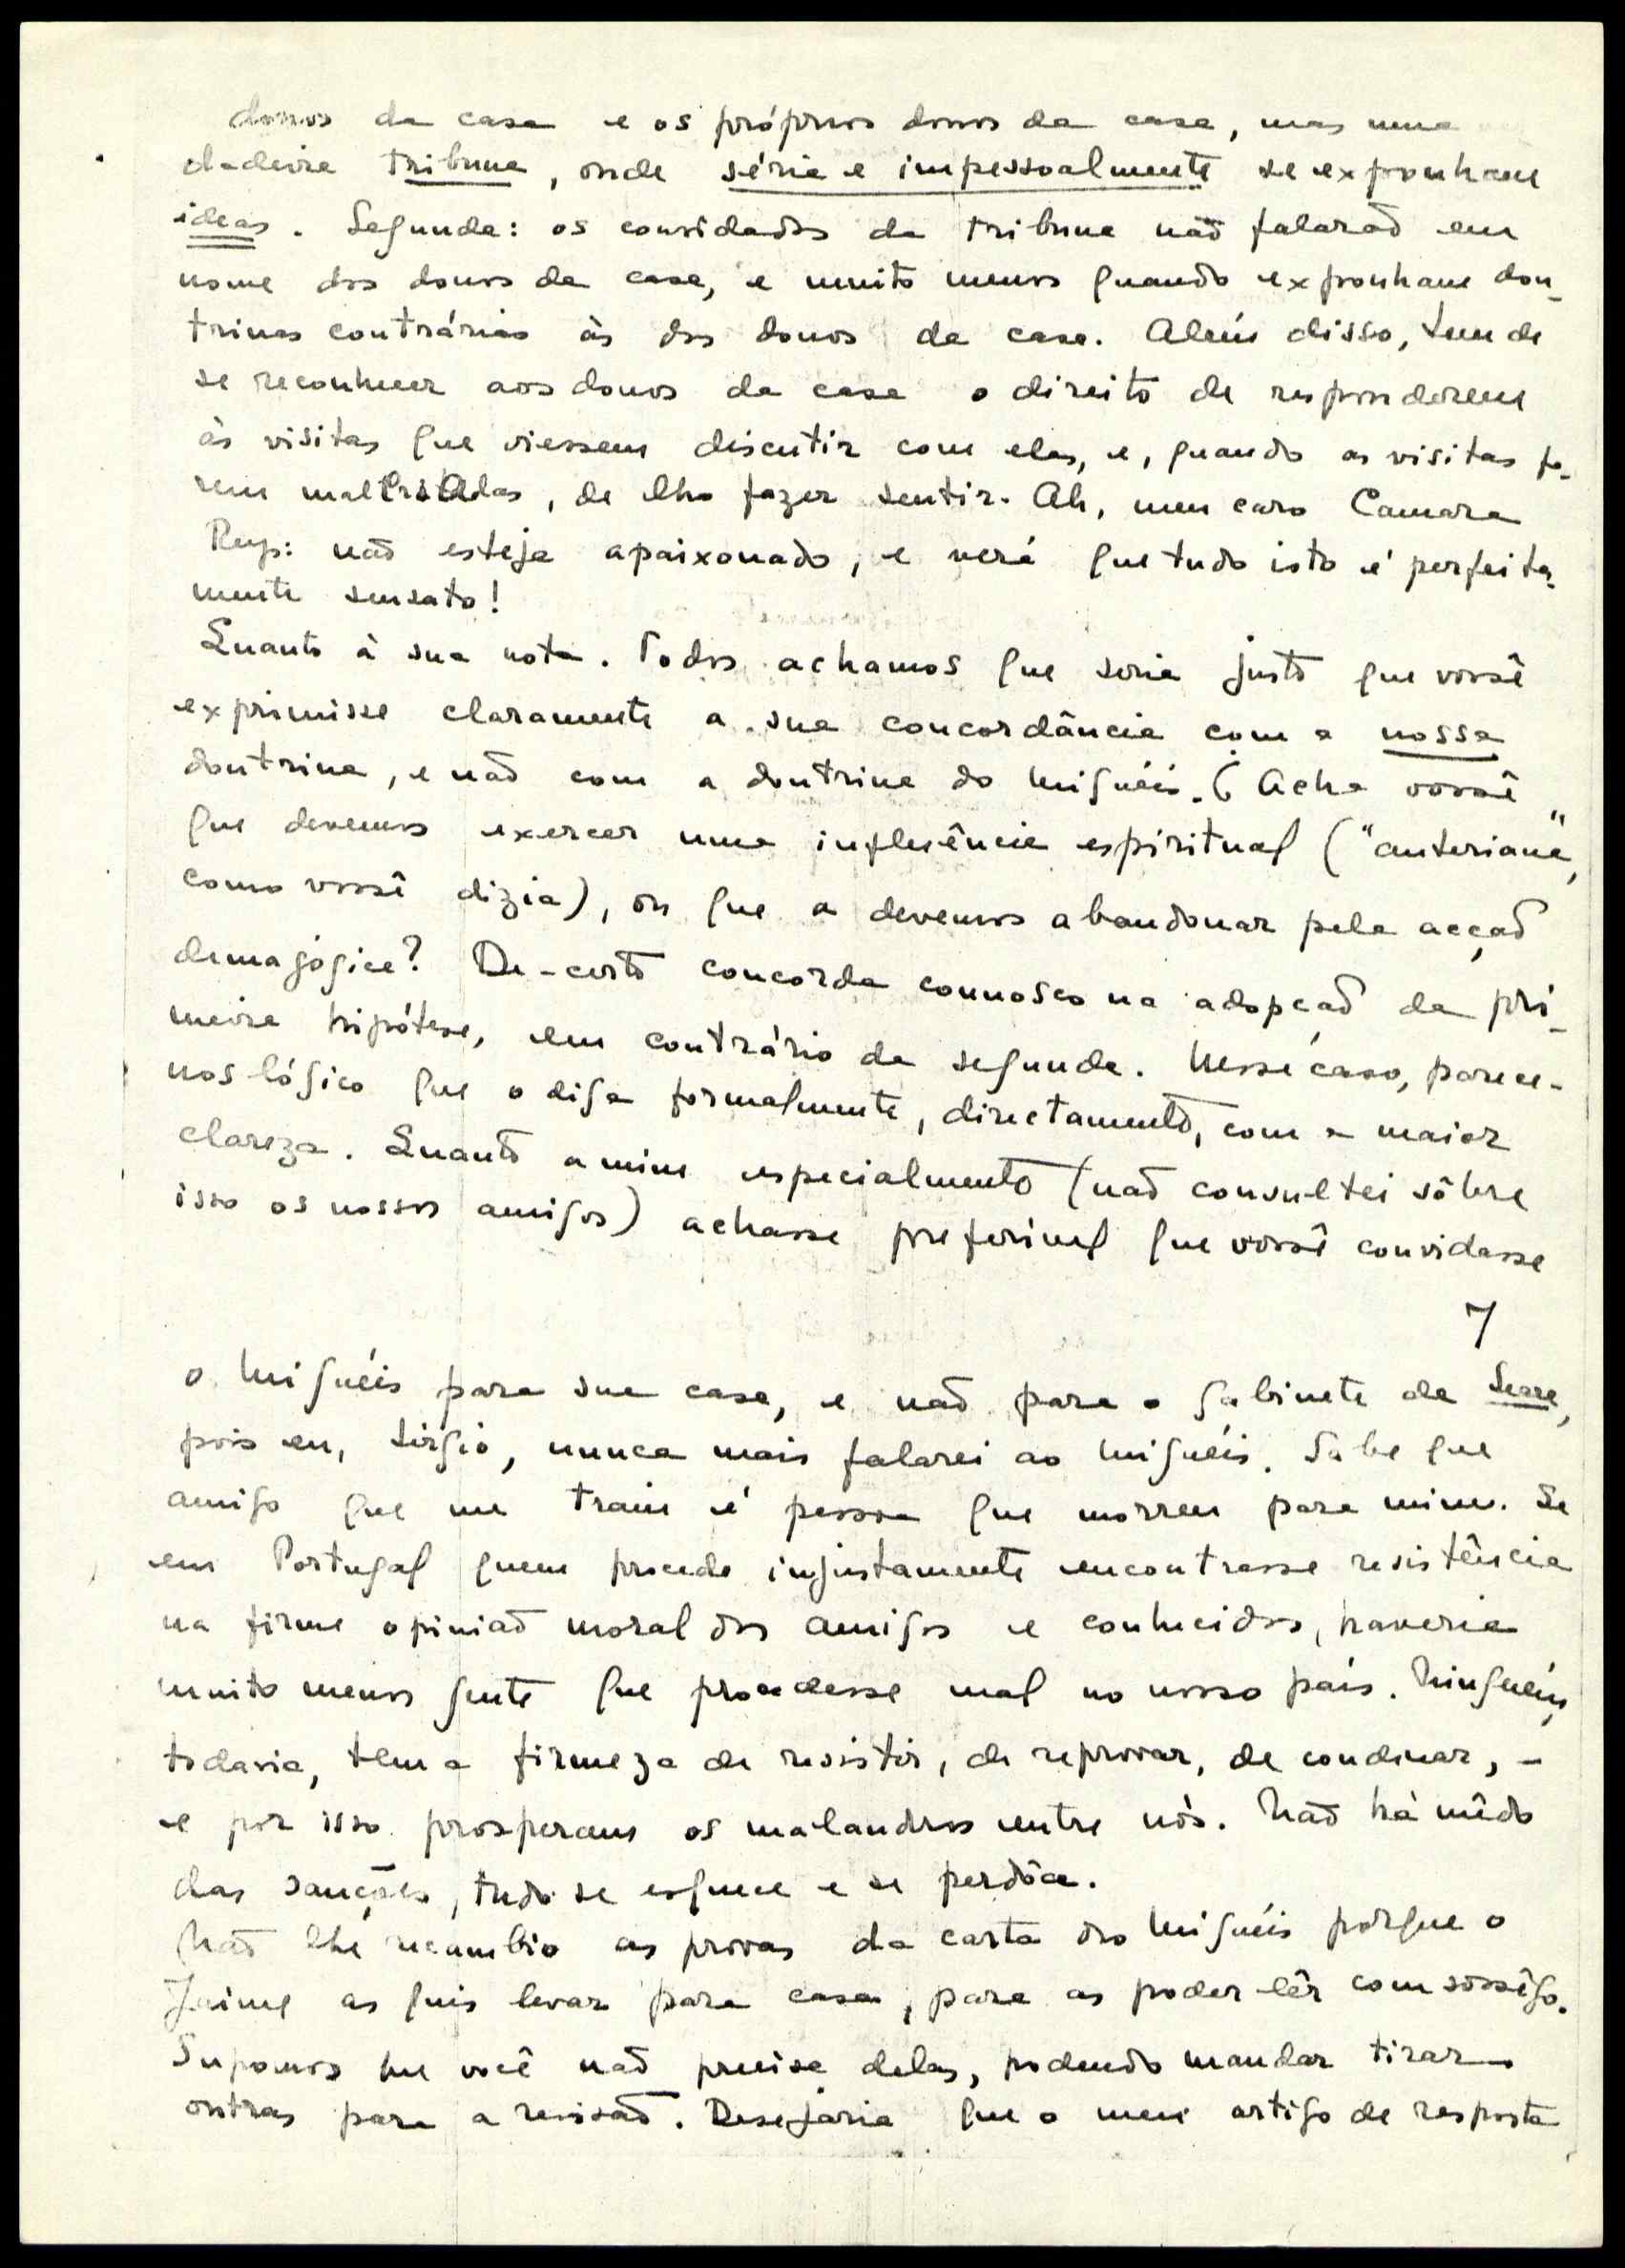 donos da casa e os próprios donos da casa, mas uma
dadeira tribuna, onde séria e impessoalmente se exponham
ideas. Segunda: os convidados da tribuna não falarão em
nome dos donos da casa, e muito menos quando exponham dou-
trinas contrárias às dos donos da casa. Além disso, tem de
se reconhecer aos donos da casa o direito de responderem
às visitas que viessem discutir com elas, e, quando as visitas fo-
rem malcriadas, de lho fazer sentir. Ah, meu caro Camara
Reys: não esteja apaixonado, e verá que tudo isto é perfeita-
mente sensato!
Quanto à sua nota. Todos achamos que seria justo que vossê
exprimisse claramente a sua concordância com a nossa
doutrina, e não com a doutrina do Miguéis. (Acha vossê
que devemos exercer uma influência espiritual ("anteriana",
como vossê dizia), ou que a devemos abandonar pela acção
demagógica? De-certo concorda connosco na adopção da pri-
meira hipótese, em contrário da segunda. Nesse caso, parece-
nos lógico que o diga formalmente, directamente, com a maior
clareza. Quanto a mim especialmente (não consultei sôbre
isso os nossos amigos) achasse preferível que vossê convidasse
7
o Miguéis para sua casa, e não para o gabinete da Seara,
pois eu, Sérgio, nunca mais falarei ao Miguéis. Sabe que
amigo que me traiu é pessoa que morreu para mim. Se
em Portugal quem procede injustamente encontrasse resistência
na firme opinião moral dos amigos e conhecidos, haveria
muito menos gente que procedesse mal no nosso país. Ninguém,
todavia, tem a firmeza de resistir, de reprovar, de condenar, -
e por isso prosperam os malandros entre nós. Não há mêdo
das sanções, tudo se esquece e se perdôa.
Não lhe recambio as provas da carta do Miguéis porque o
Jaime as quis levar para casa, para as poder lêr com sossêgo.
Supomos que você não precisa delas, podendo mandar tirar
outras para a revisão. Desejaria que o meu artigo de resposta